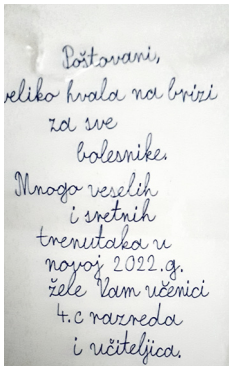 Poštovani,
veliko hvala na brizi
za sve
bolesnike.
Mnogo veselih
i sretnih
trenutaka u
novoj 2022.g.
žele Vam učenici
4.c razreda
i učiteljica.